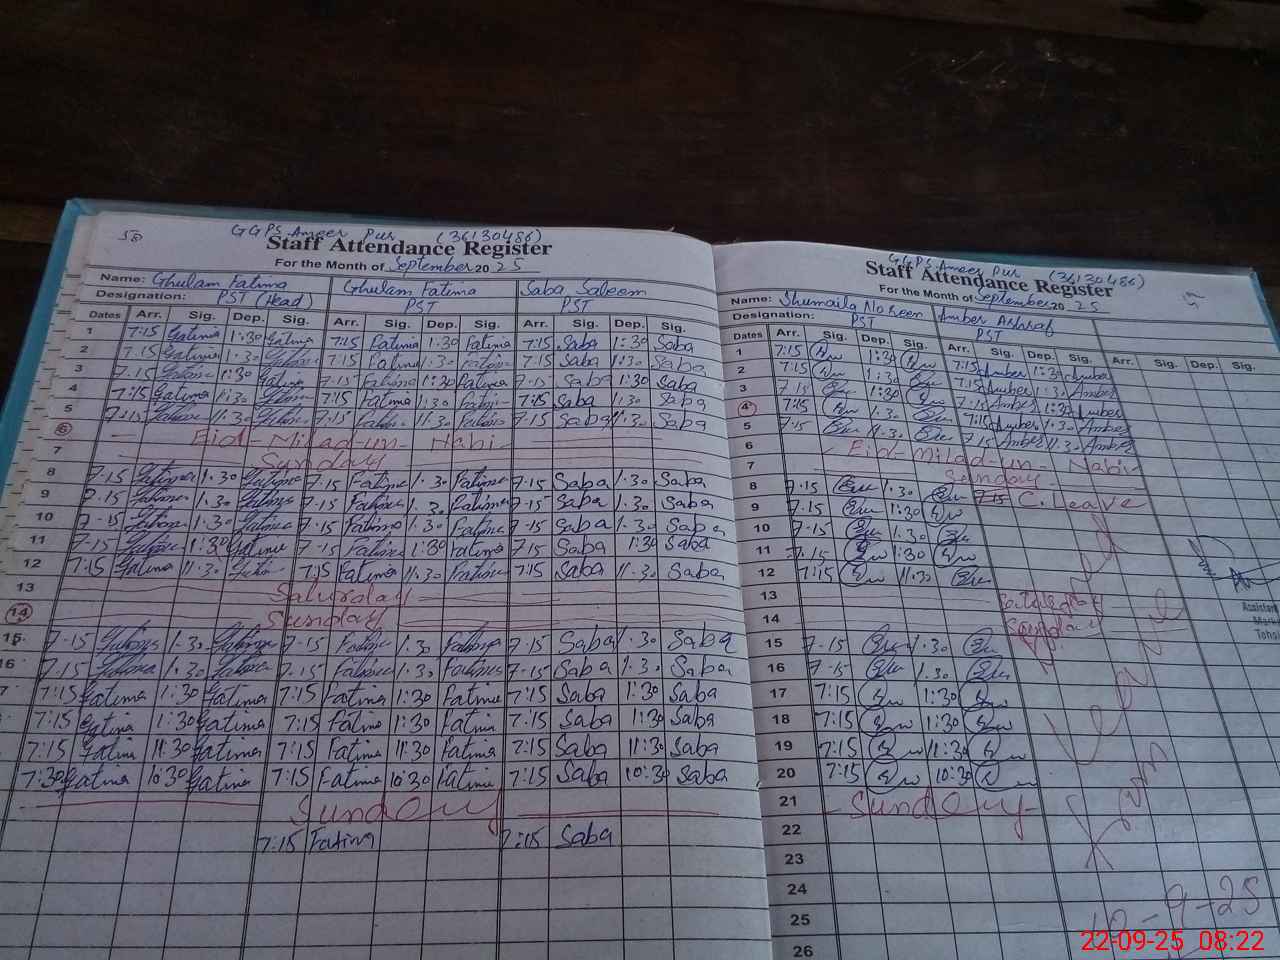 50
GGPS Ameer Pur (36130486)
Staff Attendance Register
For the Month of September 2025
Name: Ghulam Fatima Ghulam Fatima Saba Saleem
Designation: PST (Head) PST PST
Dates Arr. Sig. Dep. Sig. Arr. Sig. Dep. Sig. Arr. Sig. Dep. Sig.
1 7:15 Fatima 1:30 Fatima 7:15 Fatima 1:30 Fatima 7:15 Saba 1:30 Saba
2 7:15 Fatima 1:30 Fatima 7:15 Fatima 1:30 Fatima 7:15 Saba 1:30 Saba
3 7:15 Fatima 1:30 Fatima 7:15 Fatima 1:30 Fatima 7:15 Saba 1:30 Saba
4 7:15 Fatima 1:30 Fatima 7:15 Fatima 1:30 Fatima 7:15 Saba 1:30 Saba
5 7:15 Fatima 11:30 Fatima 7:15 Fatima 11:30 Fatima 7:15 Saba 11:30 Saba
6 Eid-Milad-un-Nabi
7 Sunday
8 7:15 Fatima 1:30 Fatima 7:15 Fatima 1:30 Fatima 7:15 Saba 1:30 Saba
9 7:15 Fatima 1:30 Fatima 7:15 Fatima 1:30 Fatima 7:15 Saba 1:30 Saba
10 7:15 Fatima 1:30 Fatima 7:15 Fatima 1:30 Fatima 7:15 Saba 1:30 Saba
11 7:15 Fatima 1:30 Fatima 7:15 Fatima 1:30 Fatima 7:15 Saba 1:30 Saba
12 7:15 Fatima 11:30 Fatima 7:15 Fatima 11:30 Fatima 7:15 Saba 11:30 Saba
13 Saturday
14 Sunday
15 7:15 Fatima 1:30 Fatima 7:15 Fatima 1:30 Fatima 7:15 Saba 1:30 Saba
16 7:15 Fatima 1:30 Fatima 7:15 Fatima 1:30 Fatima 7:15 Saba 1:30 Saba
7 7:15 Fatima 1:30 Fatima 7:15 Fatima 1:30 Fatima 7:15 Saba 1:30 Saba
7:15 Fatima 1:30 Fatima 7:15 Fatima 1:30 Fatima 7:15 Saba 1:30 Saba
7:15 Fatima 11:30 Fatima 7:15 Fatima 11:30 Fatima 7:15 Saba 11:30 Saba
7:30 Fatima 10:30 Fatima 7:15 Fatima 10:30 Fatima 7:15 Saba 10:30 Saba
Sunday
7:15 Fatima 7:15 Saba
GGPS Ameer Pur (36130486)
Staff Attendance Register
For the Month of September 2025
Name: Shumaila Noreen Amber Ashraf
Designation: PST PST
Dates Arr. Sig. Dep. Sig. Arr. Sig. Dep. Sig. Arr. Sig. Dep. Sig.
1 7:15 1:30 7:15 Amber 1:30 Amber
2 7:15 1:30 7:15 Amber 1:30 Amber
3 7:15 1:30 7:15 Amber 1:30 Amber
4 7:15 1:30 7:15 Amber 1:30 Amber
5 7:15 11:30 7:15 Amber 11:30 Amber
6 Eid-Milad-un-Nabi
7 Sunday
8 7:15 1:30 7:15 C. Leave
9 7:15 1:30
10 7:15 1:30
11 7:15 1:30
12 7:15 11:30
13 Saturday
14 Sunday
15 7:15 1:30
16 7:15 1:30
17 7:15 1:30
18 7:15 1:30
19 7:15 11:30
20 7:15 10:30
21 Sunday
22
23
24
25
26
Assistant
22-09-25 08:22